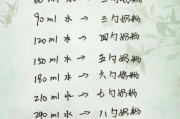 60 ml 水 → 二勺奶粉
90 ml 水 → 三勺奶粉
120 ml 水 → 四勺奶粉
150 ml 水 → 五勺奶粉
180 ml 水 → 六勺奶粉
210 ml 水 → 七勺奶粉
240 ml 水 → 八勺奶粉